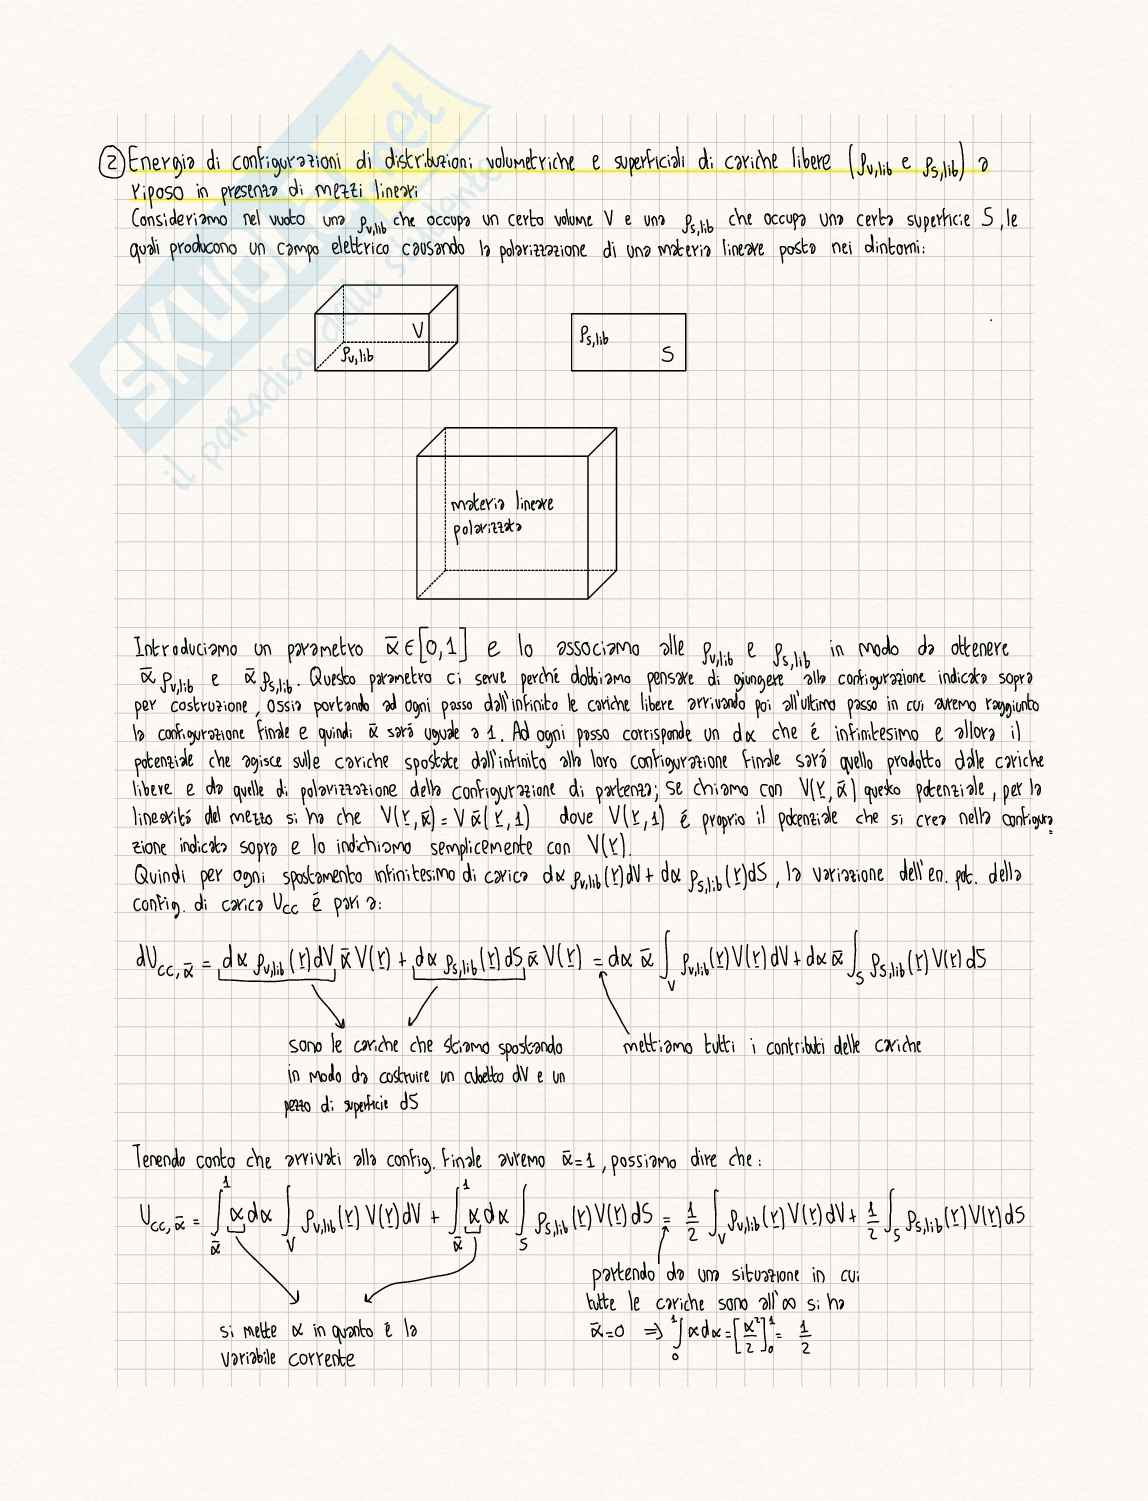 ② Energia di configurazioni di distribuzioni volumetriche e superficiali di cariche libere (ρv,lib e ρs,lib) a
riposo in presenza di mezzi lineari
Consideriamo nel vuoto una ρv,lib che occupa un certo volume V e una ρs,lib che occupa una certa superficie S, le
quali producono un campo elettrico causando la polarizzazione di una materia lineare posta nei dintorni:
V
ρv,lib
ρs,lib
S
materia lineare
polarizzata
Introduciamo un parametro ᾱ ∈ [0,1] e lo associamo alle ρv,lib e ρs,lib in modo da ottenere
ᾱ ρv,lib e ᾱ ρs,lib. Questo parametro ci serve perché dobbiamo pensare di giungere alla configurazione indicata sopra
per costruzione, ossia portando ad ogni passo dall'infinito le cariche libere arrivando poi all'ultimo passo in cui avremo raggiunto
la configurazione finale e quindi ᾱ sarà uguale a 1. Ad ogni passo corrisponde un dα che é infinitesimo e allora il
potenziale che agisce sulle cariche spostate dall'infinito alla loro configurazione finale sará quello prodotto dalle cariche
libere e da quelle di polarizzazione della configurazione di partenza; se chiamo con V(r,ᾱ) questo potenziale, per la
linearitá del mezzo si ha che V(r,ᾱ) = V ᾱ(r,1) dove V(r,1) é proprio il potenziale che si crea nella configura
zione indicata sopra e lo indichiamo semplicemente con V(r).
Quindi per ogni spostamento infinitesimo di carica dα ρv,lib(r)dV + dα ρs,lib(r)dS, la variazione dell'en. pot. della
config. di carica Ucc é pari a:
dUcc,ᾱ = dα ρv,lib(r)dV ᾱ V(r) + dα ρs,lib(r)dS ᾱ V(r) = dα ᾱ ∫V ρv,lib(r)V(r)dV + dα ᾱ ∫S ρs,lib(r)V(r)dS
sono le cariche che stiamo spostando
in modo da costruire un cubetto dV e un
pezzo di superficie dS
mettiamo tutti i contributi delle cariche
Tenendo conto che arrivati alla config. finale avremo ᾱ=1, possiamo dire che:
Ucc,ᾱ = ∫ᾱ^1 α dα ∫V ρv,lib(r) V(r)dV + ∫ᾱ^1 α dα ∫S ρs,lib(r)V(r)dS = 1/2 ∫V ρv,lib(r)V(r)dV + 1/2 ∫S ρs,lib(r)V(r)dS
si mette α in quanto é la
variabile corrente
partendo da una situazione in cui
tutte le cariche sono all'∞ si ha
ᾱ=0 ⇒ ∫0^1 α dα = [α²/2]0^1 = 1/2
SKUOLA.net
il paradiso dello studente